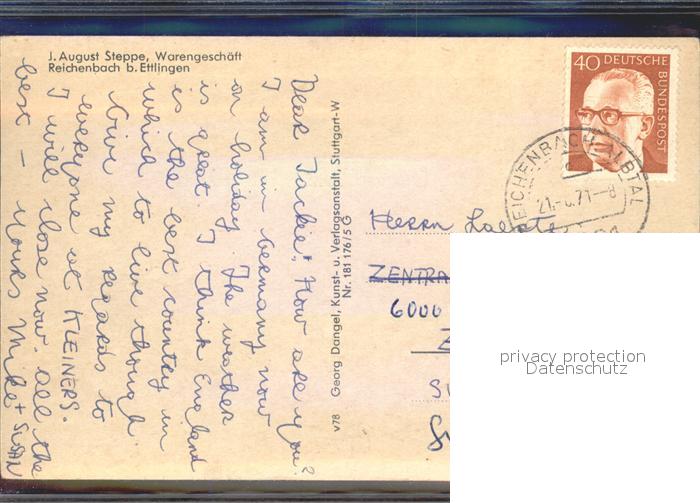 J. August Steppe, Warengeschäft
Reichenbach b. Ettlingen
Dear Jackie, How are you?
I am in Germany now
on holiday. The weather
is great. I think England
is the best country in
which to live though.
Give my regards to
everyone at KLEINERS.
I will close now. all the
best — Yours Mike + Susan
V78 Georg Dangel, Kunst- u. Verlagsanstalt, Stuttgart-W
Nr. 181 176/5 G
40 DEUTSCHE
BUNDESPOST
REICHENBACH ALBTAL
71-8
Herrn
ZENTRA
6000
privacy protection
Datenschutz